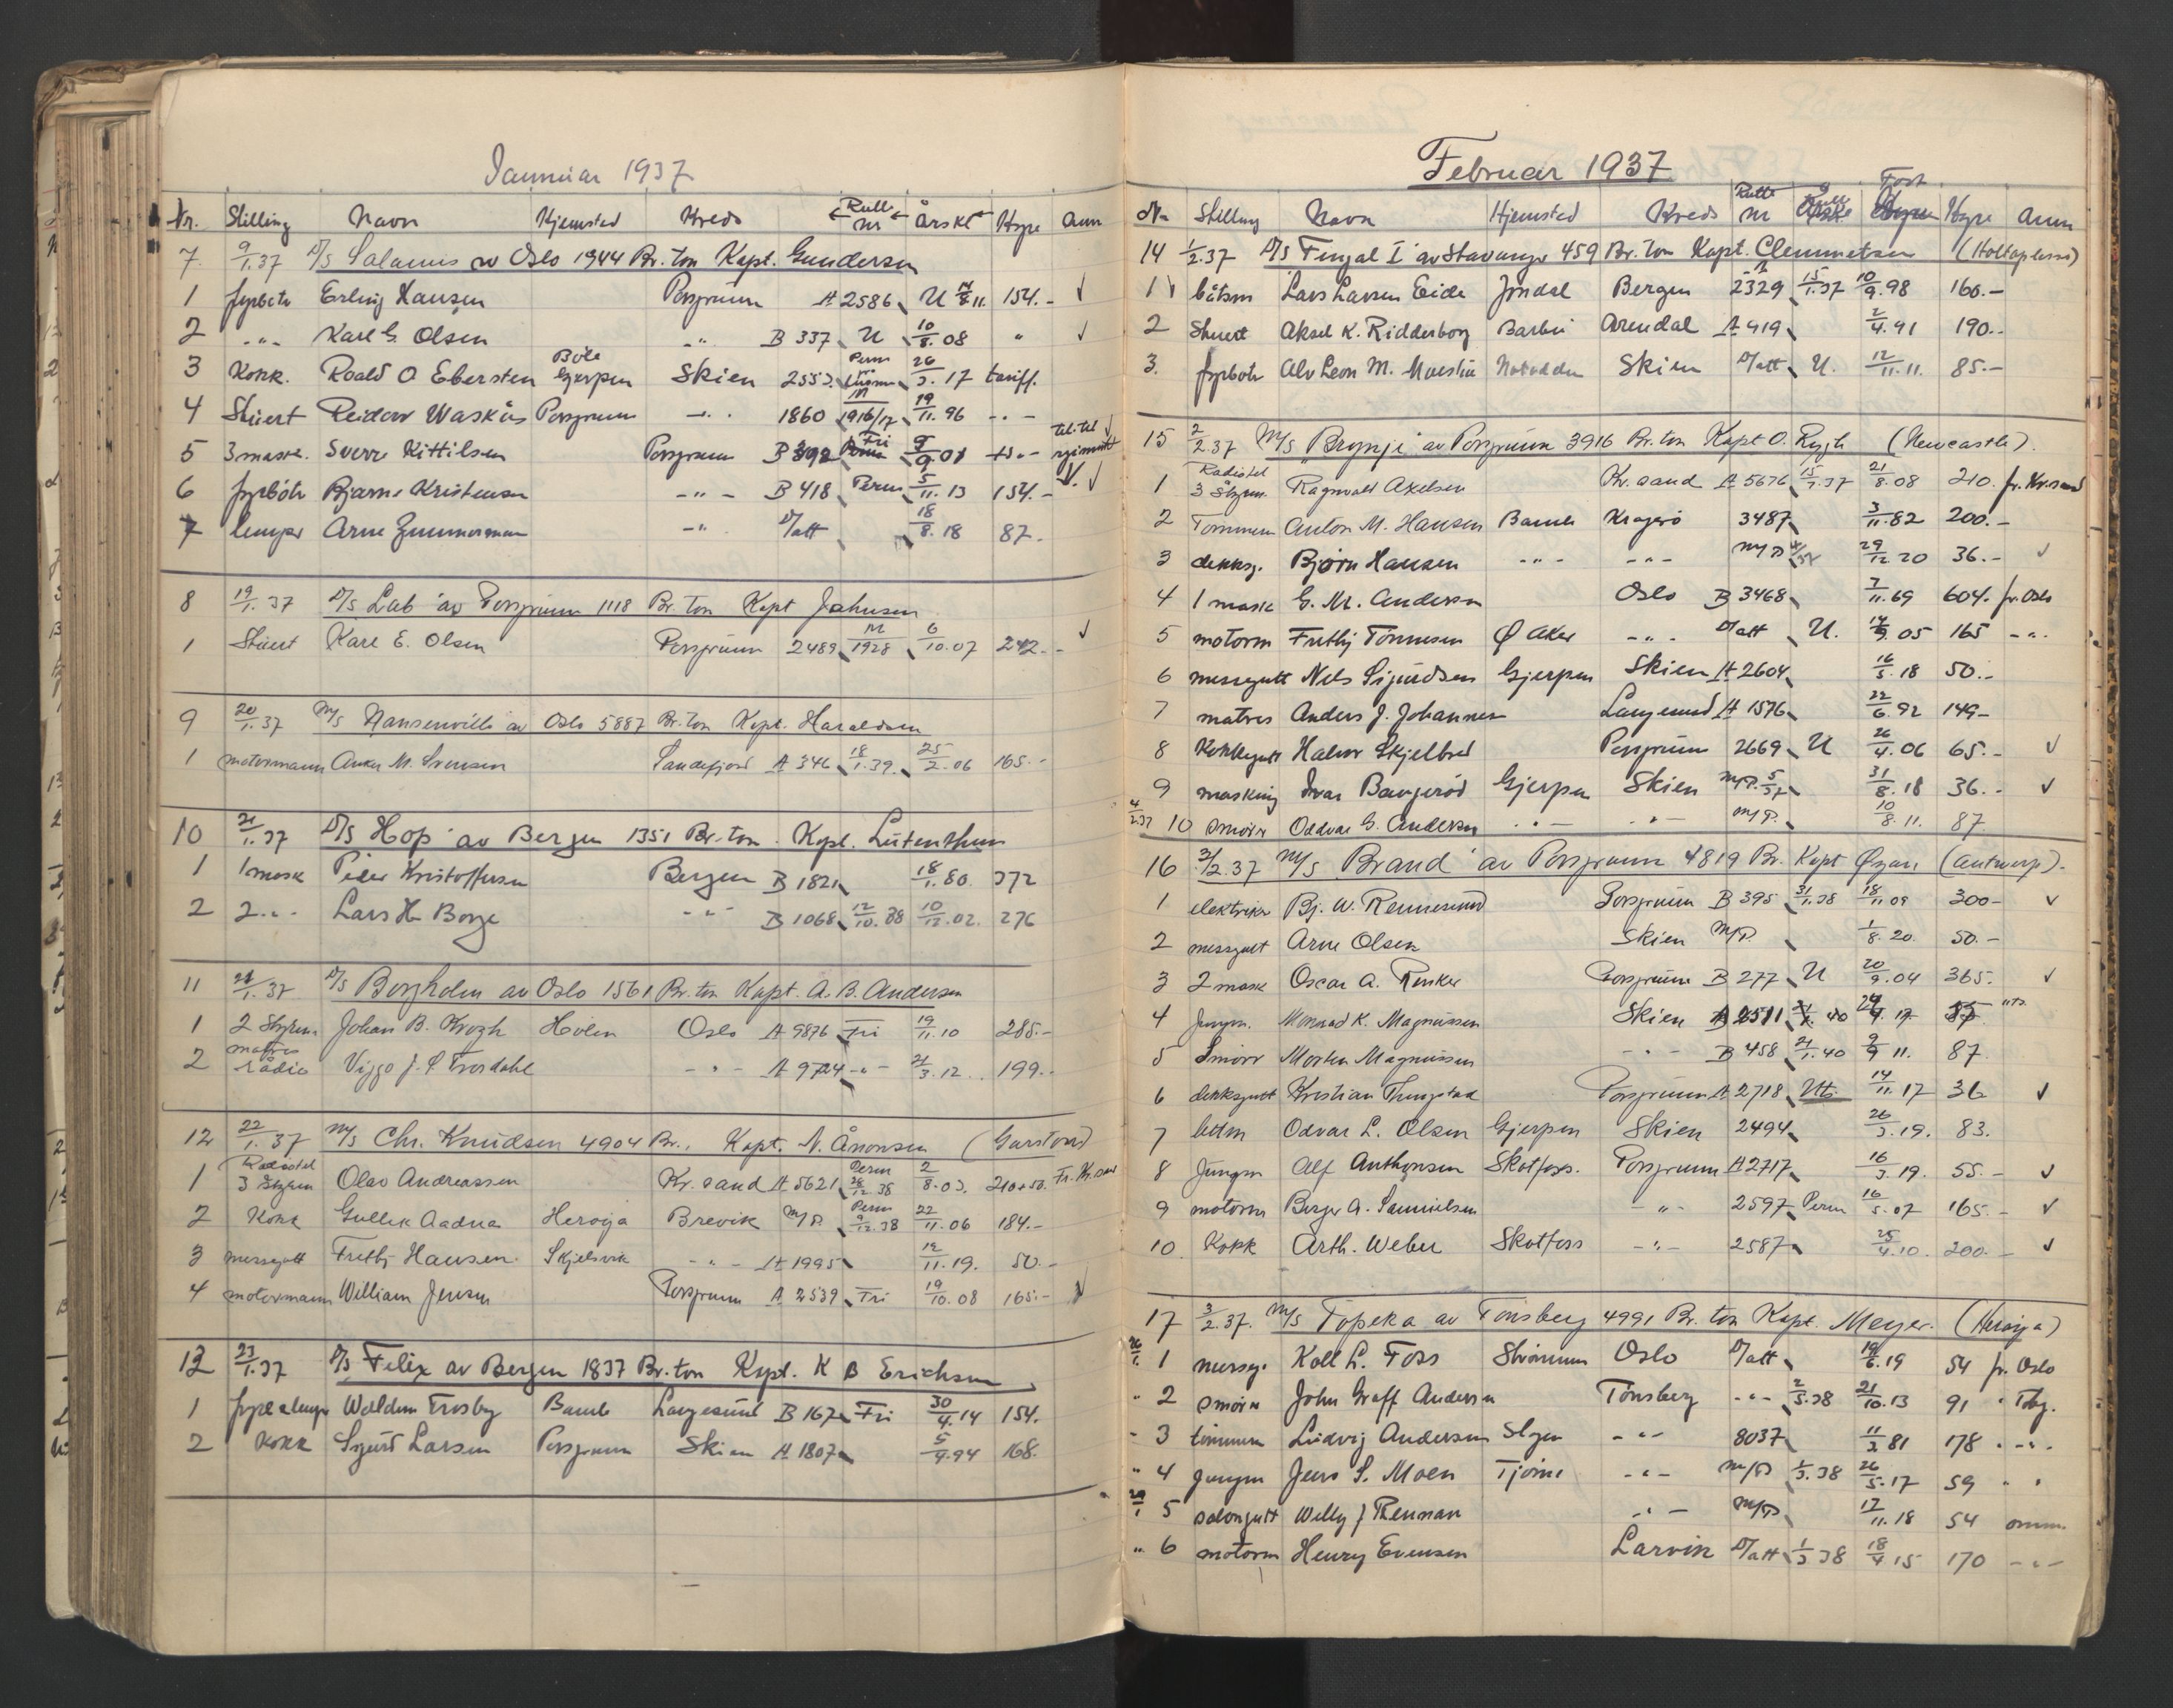 Januar 1937
Nr. Stilling Navn Hjemsted Kreds Rulle nr Årskl Hyre Anm
7. 9/1.37 D/S Salamis av Oslo 1944 Br. ton Kapt. Gundersen
1 fyrbøter Erling Hansen Porsgrunn A 2586 U 14/8 11. 154.- √
2 -"- Karl G. Olsen -"- B 337 U 10/8.08 " √
3 Kokk. Roald O Ebersten Böle Gjerpen Skien 2553 Perm 26/3.17 tariff.
4 Stuert Reidar Waskås Porsgrunn -"- 1860 M 1916/17 19/11.96 -"-
5 3 mask. Sverre Kittilsen Porsgrunn B 392 Fri 9/9.01 til.til √
6 fyrbötr Bjarne Kristensen -"- B 418 Perm 5/11.13 154.- √ √
7 lemper Arne Zimmerman -"- D/att 18/8.18 87.-
8 19/1.37 D/S Lab av Porsgrunn 1118 Br. ton Kapt Jahnsen
1 Stuert Karl E. Olsen Porsgrunn 2489 M 1928 6/10.07 242.- √
9 20/1.37 M/S Hansenville av Oslo 5887 Br. ton Kapt. Haraldsen
1 motormann Anker M. Svensen Sandefjord A 346 18/1.39 25/2.06 165.-
10 21/1.37 D/S Hop av Bergen 1351 Br. ton. Kapt. Lütenthun
1 1 mask Peder Kristoffersen Bergen B 1821 18/1.80. 372
2 2 -"- Lars H. Borge -"- B 1068 12/10.38 10/12.02. 276
11 21/1.37 D/S Borgholm av Oslo 1561 Br. ton Kapt. A. B. Andersen
1 2 Styrm. Johan B. Krogh Holen Oslo A 9876 Fri 19/11.10 285.-
2 matros radio Viggo J. S Trosdahl -"- A 9724 -"- 21/3.12. 199.-
12 22/1.37 M/S Chr. Knudsen 4904 Br., Kapt. N. Ånonsen (Garstond)
1 Radiotel 3 Styrm Olav Andreassen Kr.sand A 5621 Perm 28/12.38 2/8.03. 210+50. Fr. Kr.sand
2 Kokk Gullik Aadna Herøya Brevik M/P. Perm 9/12.38 22/11.06 184.-
3 messegutt Frithj Hansen Skjelsvik -"- A 1995 12/11.19. 50.-
4 motormann William Jensen Porsgrunn A 2539 Fri 19/10.08 165.- √
13 23/1.37 D/S Felix av Bergen 1837 Br. ton Kapt. K B Erichsen
1 Waldem Trosby Bamb Langesund B 167 Fri 30/4.14 154.
2 Kokk Sigurd Larsen Porsgrunn Skien A 1807 5/4.94 168.
Februar 1937
Nr Stilling Navn Hjemsted Kreds Rulle nr Født Hyre Anm
14 1/2.37 D/S Fingal I av Stavanger 459 Br. ton Kapt. Clemmetsen (Holtaplassi)
1 √ båtsm Lars Larsen Eide Jondal Bergen 2329 15/1.37 10/9.98 160.-
2 Stuert Aksel K. Ridderborg Barbu Arendal A 419 2/4.91 190.-
3. fyrbötr Alv Leon M. Notodden Skien D/att U. 12/11.11. 85.-
15 2/2.37 M/S "Brynje" av Porsgrunn 3916 Br. ton Kapt O. Rygh (Newcastle).
1 Radiotel 3 Styrm. Ragnvald Axelsen Kr.sand A 5676 15/3.37 21/8.08 210. fr. Kr.sand
2 Tömmerm Anton M. Hansen Bamb Kragerö 3487 3/11.82 200.-
3 dekksg. Bjørn Hansen -"- -"- M/P 4/37 29/12 20 36.- √
4 1 mask G. M. Andersen Oslo B 3468 7/11.69 604. fr. Oslo
5 motorm Frithj Tönnesen Ø Aker -"- D/att U. 14/9.05 165 -"-
6 messegutt Nils Sigurdsen Gjerpen Skien A 2604 16/5.18 50.-
7 matros Anders J. Johannes Langesund A 1576 22/6.92 149-
8 Kokkegutt Halvor Skjelbred Porsgrunn 2669 U 26/4.06 65.- √
9 masking Ivar Baugerød Gjerpen Skien M/P. 5/37 31/8.18 36.- √
4/2.37 10 smörer Oddvar G. Andersen -"- -"- M/P. 10/8.11. 87
16 3/2.37 M/S Brand av Porsgrunn 4819 Br. Kapt (Antwerp).
1 elektriker Bj. W. Rennesund Porsgrunn B 395 31/1.38 18/11 09 300- √
2 messgutt Arne Olsen Skien M/P. 1/8.20. 50.-
3 2 mask Oscar A. Renker Porsgrunn B 277 U 20/9.04 365. √
4 Jungm. Monrad K. Magnussen Skien A 2511 40 17
5 Smörer Morten Magnussen -"- B 458 21/1.40 9/9 11. 87
6 dekksgutt Kristian Porsgrunn A 2718 Utl. 14/11.17 36 √
7 lettm Odvar L. Olsen Gjerpen Skien 2494 26/3.19. 83.
8 Jungm Alf Anthonsen Skotfoss. Porsgrunn A 2717 16/3 19. 55.- √
9 motorm Birger A. Samuelsen -"- 2597 Perm 16/5.07 165.- √
10. Kokk Arth. Weber Skotfoss -"- 2587 25/4.10. 200.- √
17 3/2.37. M/S Topeka av Tönsberg 4991 Br. ton Kapt. Meyer. (Herøya)
1 messg. Koll L. Foss Strömmen Oslo D/att 19/6.19 54 fr. Oslo
" 2 smörer John Graff Andersen Tönsberg -"- 2/3.38 21/10.13 91 " Tbg.
" 3 tömmerm Ludvig Andersen Slagen -"- 8037 11/3 81 178 " -"-
" 4 jungm Jens S. Moen Tjöme -"- M/P 1/3.38 26/5.17 59 " "
5 salongutt Willy J Rennan -"- M/P 17/11.18 54 omm.
" 6 motorm Henry Evensen Larvik D/att 1/3 38 18/4 15 170 -"-